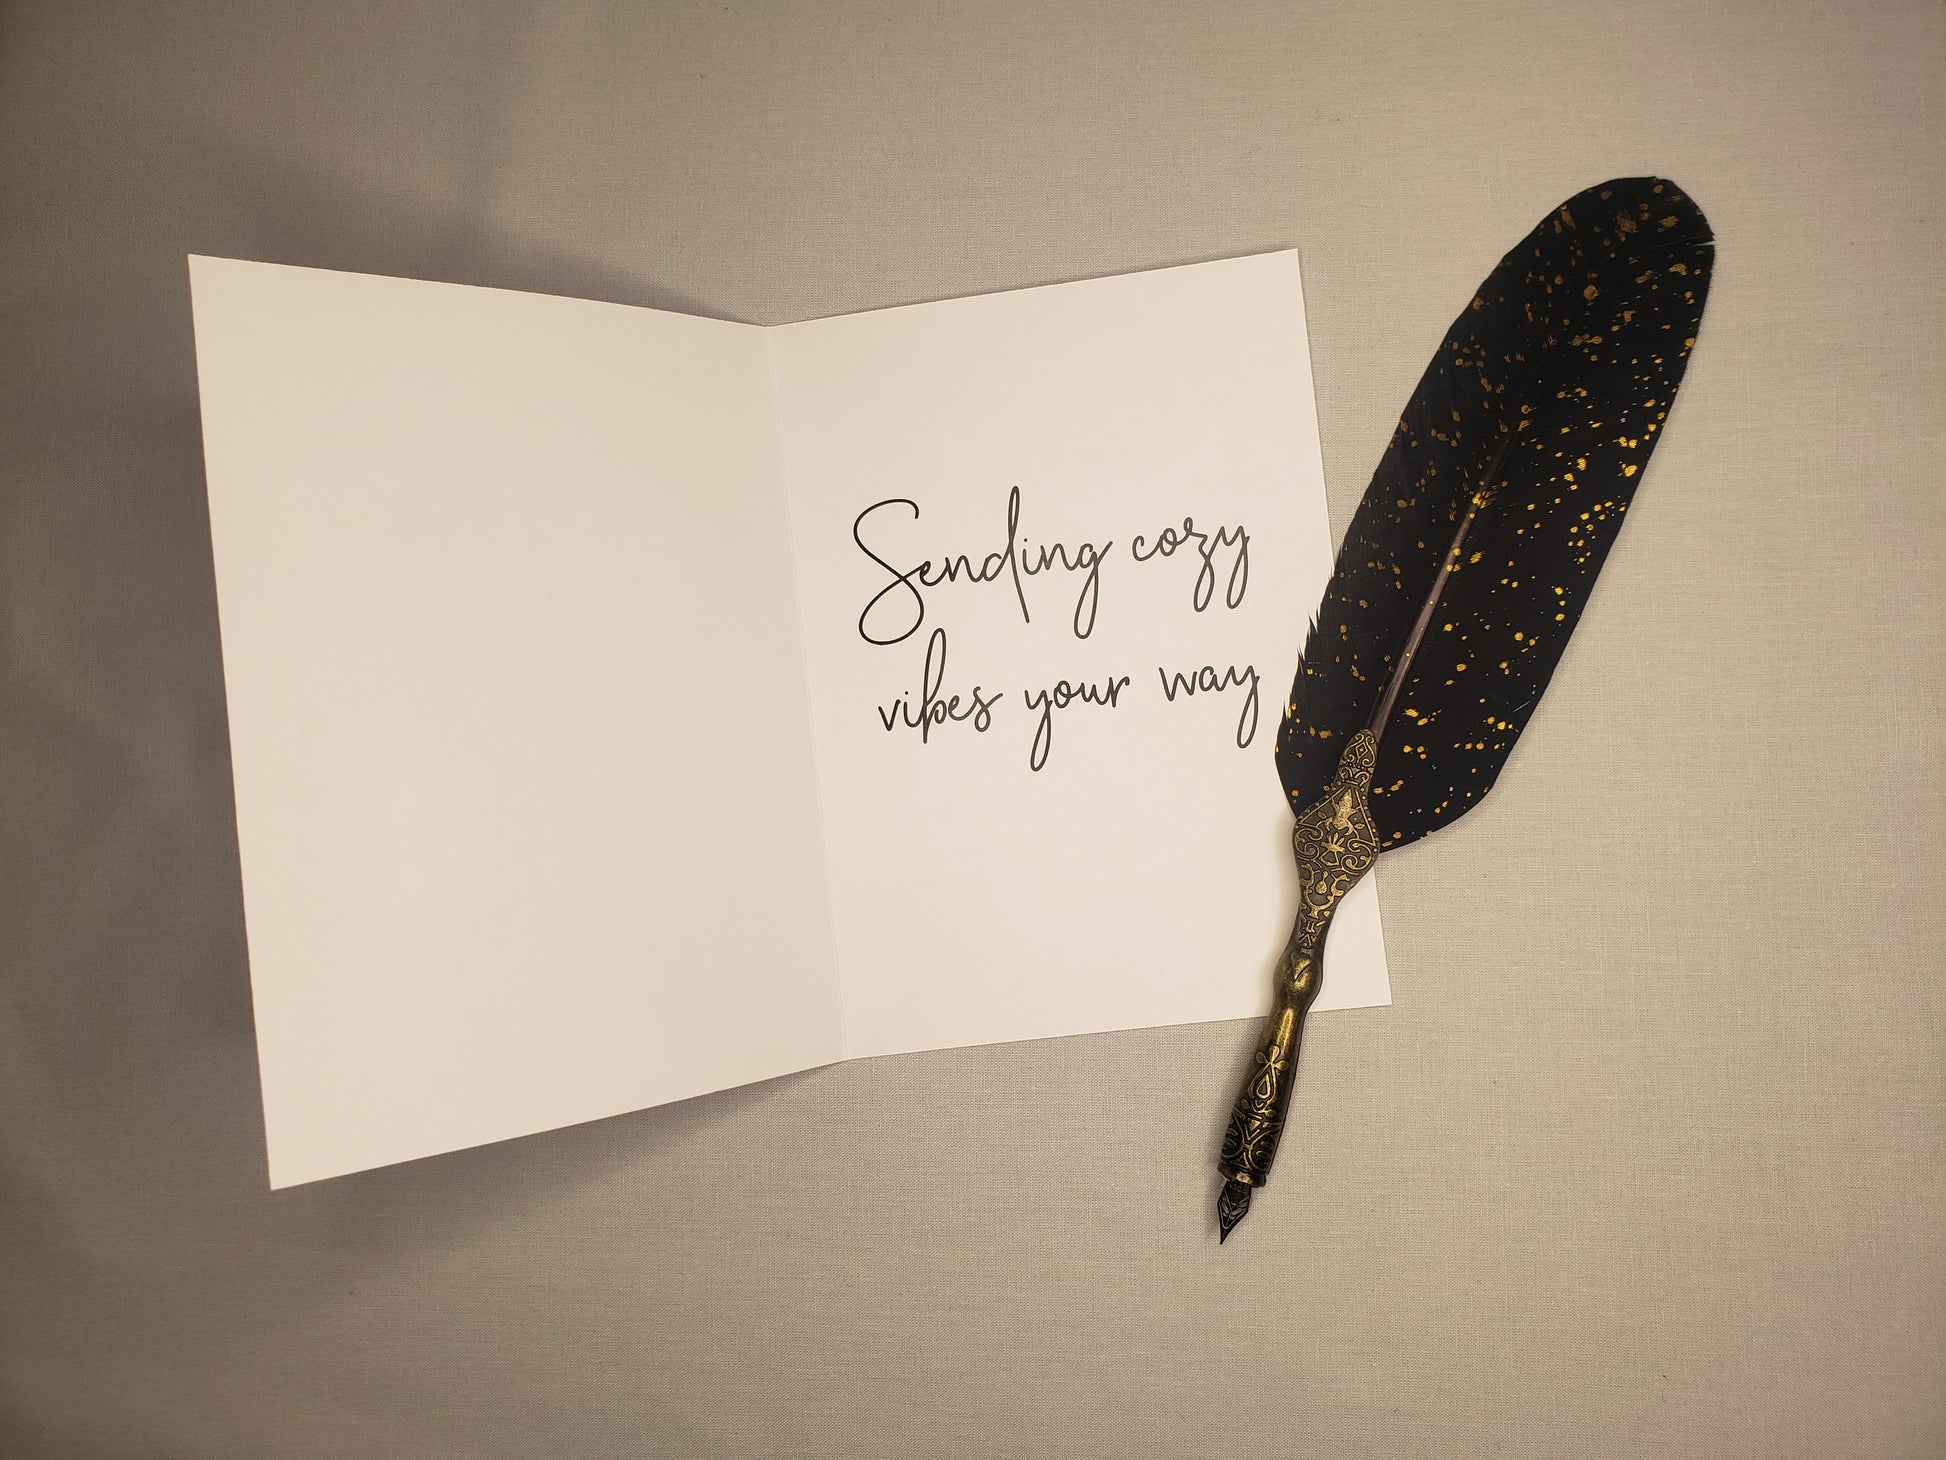 Sending cozy
vibes your way